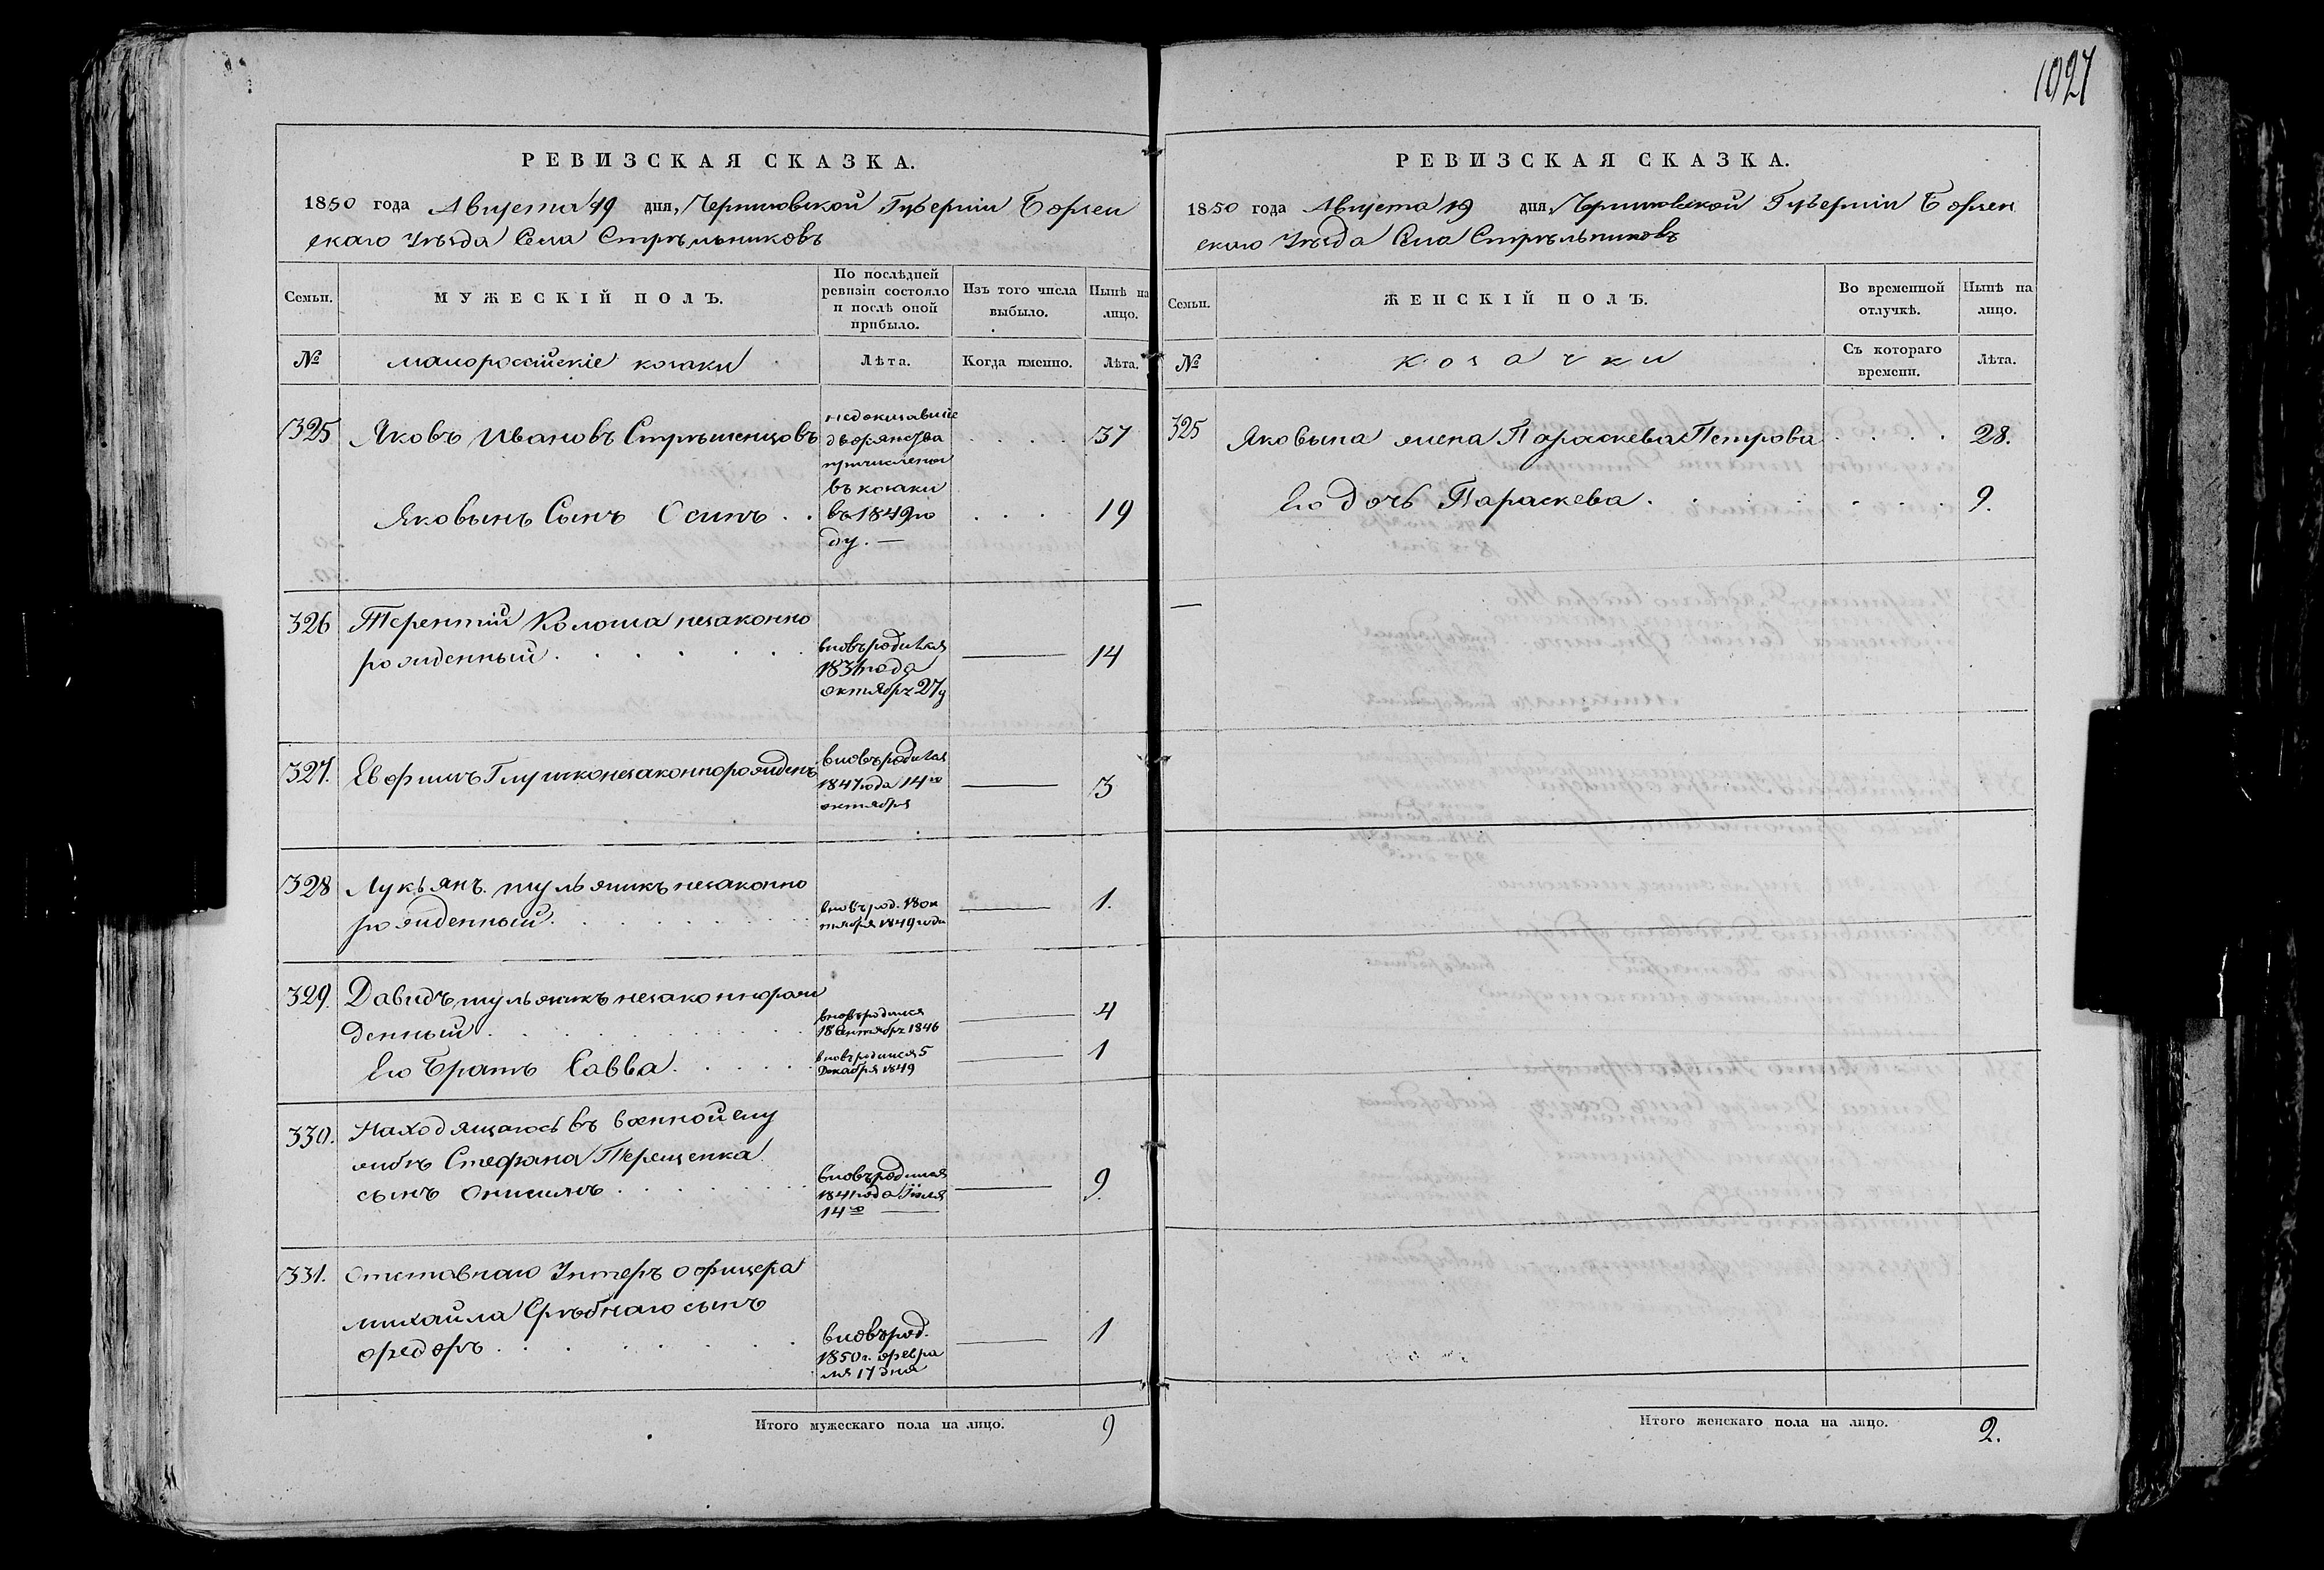 1027
РЕВИЗСКАЯ СКАЗКА.
1850 года Августа 19 дня, Черниговской Губерніи Борзен
скаго Уѣзда Села Стрѣльниковъ
Семьи.
МУЖЕСКІЙ ПОЛЪ.
По послѣдней
ревизіи состояло
и послѣ оной
прибыло.
Изъ того числа
выбыло.
Нынѣ на
лицо.
№
малороссійскіе козаки
Лѣта.
Когда именно.
Лѣта.
325 Яковъ Ивановъ
недоказавшіе
дворянства
причислены
въ козаки
въ 1849 го
ду. —
37
Яковынъ Сынъ Осипъ . . 19
326 Терентій Колоша незаконно
рожденный
вновь родился
октября 27
14
327. Евфимъ Глушко незаконнорожденъ
вновь родился
1847 года 14го
октября
3
328 Лукьянъ Шульжикъ незаконно
рожденный
вновь род. 18 ок
тября 1849 года
1.
329. Давидъ Шульжикъ незаконнорож
денный
вновь родился
1846
4
Его Братъ Савва
вновь родился 5
Декабря 1849
1
330. Находящагося въ военной слу
жбѣ Стефана Терещенка
сынъ Онисимъ
вновь родился
1841 года Іюля
14го
9.
331. Отставнаго Унтеръ офицера
Михайла Срѣбнаго сынъ
Федоръ
вновь род.
1850 г. февра
ля 17 дня
1
Итого мужескаго пола на лицо. 9
РЕВИЗСКАЯ СКАЗКА.
1850 года Августа 19 дня, Черниговской Губерніи Борзен
скаго Уѣзда Села Стрѣльниковъ
Семьи.
ЖЕНСКІЙ ПОЛЪ.
Во временной
отлучкѣ.
Нынѣ на
лицо.
№
козачки
Съ котораго
времени.
Лѣта.
325 Яковына жена Параскева Петрова 28.
Его дочь Параскева 9.
Итого женскаго пола на лицо. 2.